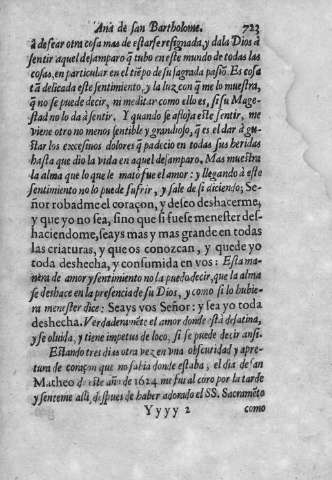 Ana de san Bartholome. 723
à desear otra cosa mas de estarse resignada, y dala Dios à
sentir aquel desamparo q̃ tubo en este mundo de todas las
cosas, en particular en el tiẽpo de su sagrada pasiõ. Es cosa
tã delicada este sentimiento, y la luz con q̃ me lo muestra,
q̃ no se puede decir, ni meditar como ello es, si su Mage-
stad no lo dà à sentir. Y quando se afloja este sentir, me
viene otro no menos sentible y grandioso, q̃ es el dar à gu-
star los excesiuos dolores q̃ padecio en todas sus heridas
hasta que dio la vida en aquel desamparo. Mas muestra
la alma que lo que le mato fue el amor: y llegando à este
sentimiento no lo puede sufrir, y sale de si diciendo; Se-
ñor robadme el coraçon, y deseo deshacerme,
y que yo no sea, sino que si fuese menester des-
haciendome, seays mas y mas grande en todas
las criaturas, y que os conozcan, y quede yo
toda deshecha, y consumida en vos: Esta ma-
nera de amor y sentimiento no la puedo decir, que la alma
se deshace en la presencia de su Dios, y como si lo hubie-
ra menester dice: Seays vos Señor: y sea yo toda
deshecha. Verdaderamẽte el amor donde està desatina,
y se oluida, y tiene impetus de loco, si se puede decir ansi.
Estando tres dias otra vez en vna obscuridad y apre-
tura de coraçon que no sabia donde estaba, el dia de san
Matheo de este año de 1624 me fui al coro por la tarde
y senteme alli, despues de haber adorado el SS. Sacramẽto
Yyyy 2 como